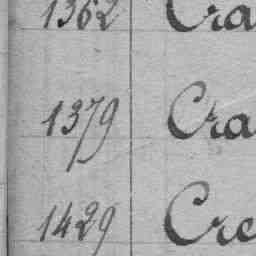 1362 Cra
1379 Cra
1429 Cre